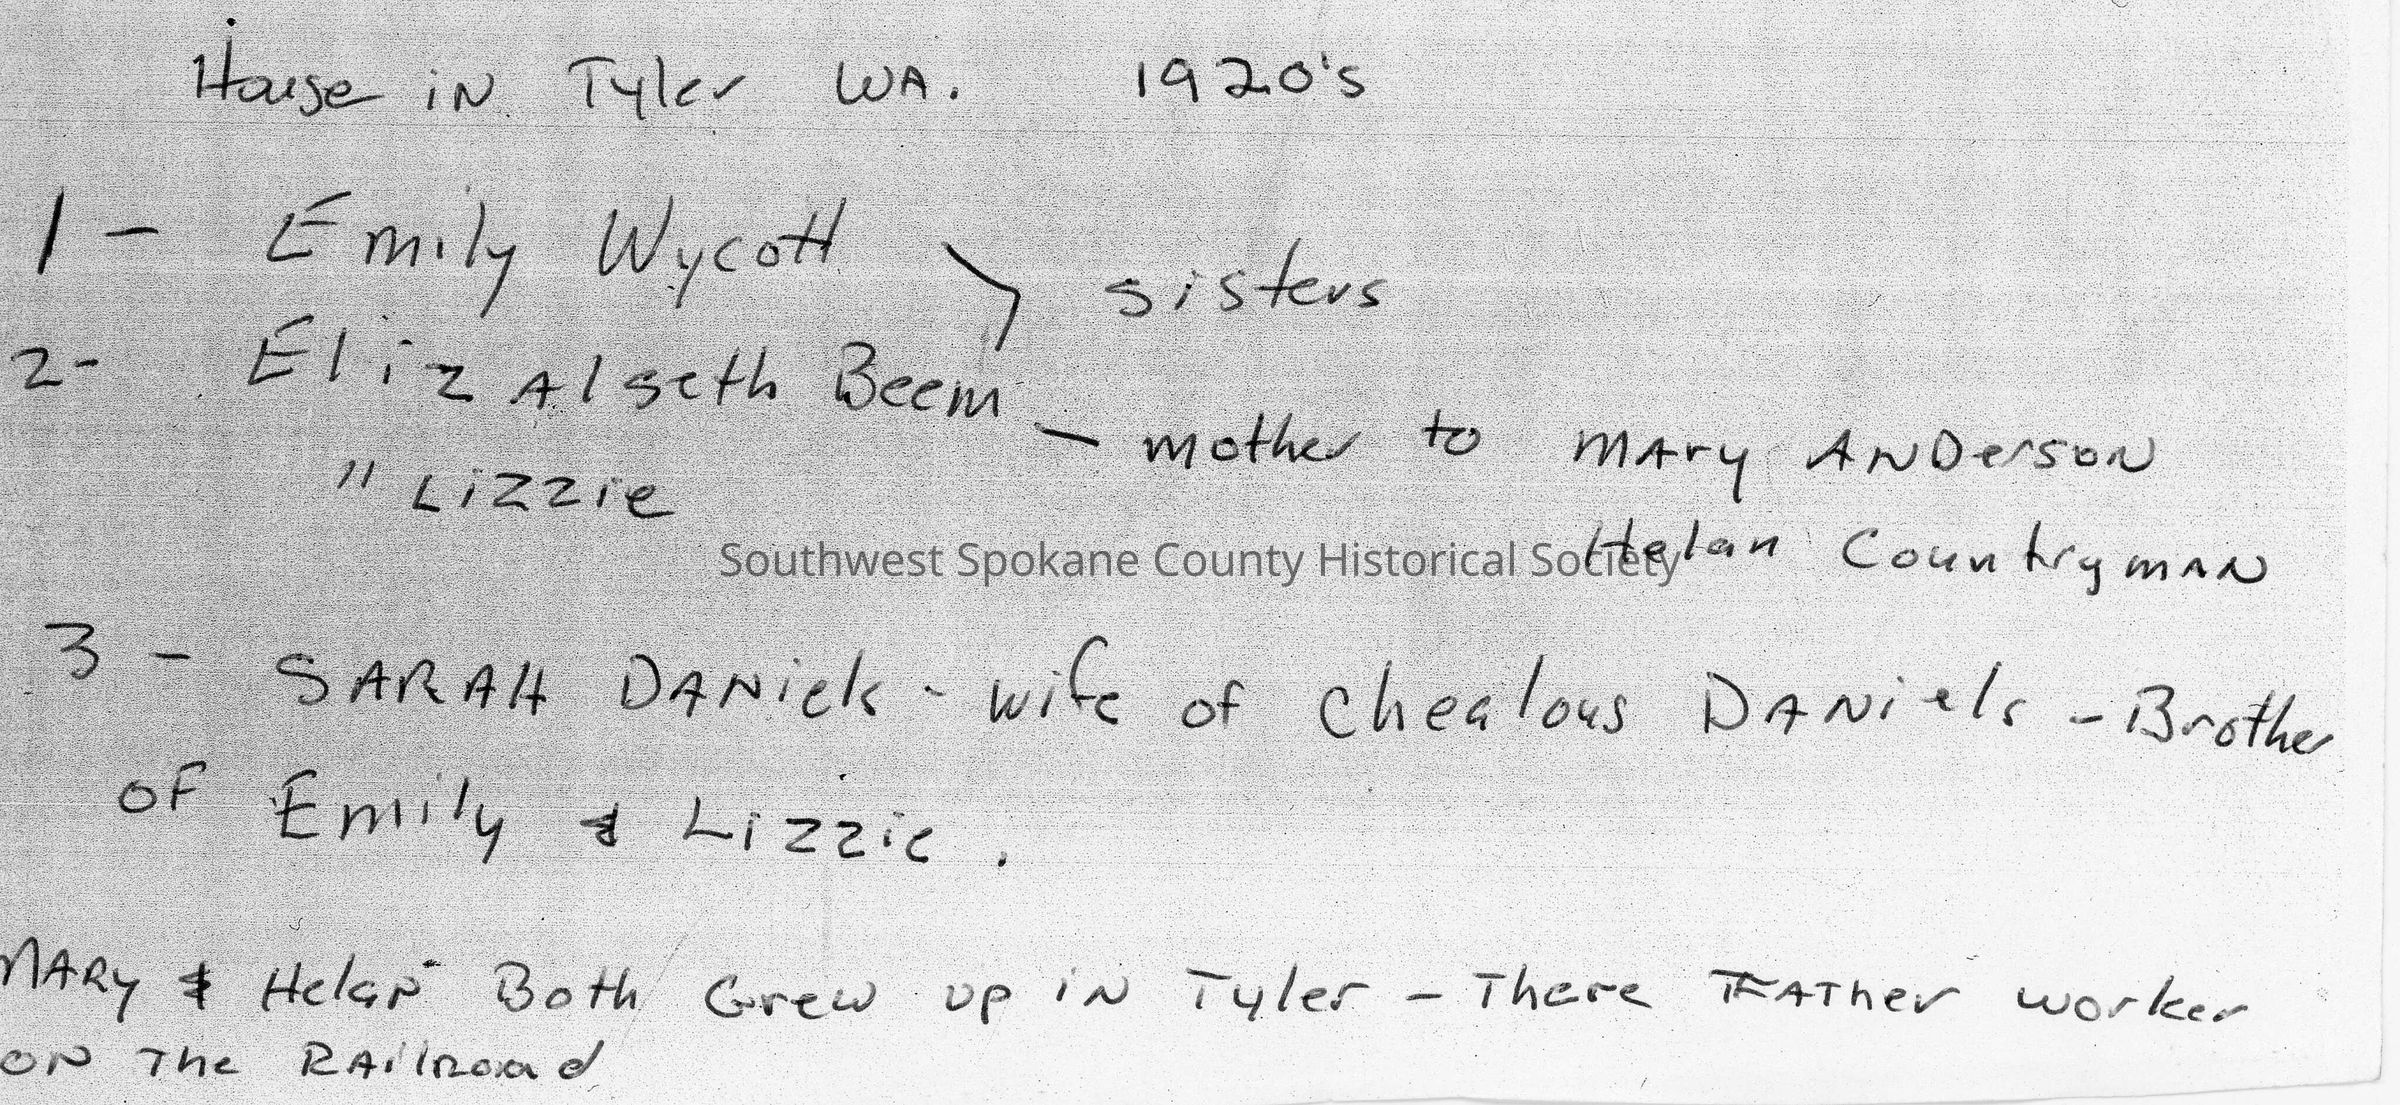 House in Tyler WA. 1920's
1 - Emily Wycoff
sisters
2- Elizalseth Beem
- mother to Mary Anderson
" Lizzie
Helan Countryman
Southwest Spokane County Historical Society
3 - SARAH DANiels - wife of Chealous DANiels - Brother
of Emily & Lizzie.
MARy & Helan Both Grew up iN Tyler - There FATher worker
ON The RAilroad